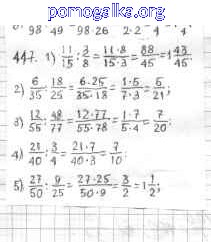 pomogalka.org
98 · 49 = 98·26 2·2 = 4 = 4
447. 1) 11/15 : 3/8 = 11·8/15·3 = 88/45 = 1 43/45;
2) 6/35 : 18/25 = 6·25/35·18 = 1·5/7·3 = 5/21;
3) 12/55 : 48/77 = 12·77/55·78 = 1·7/5·4 = 7/20;
4) 21/40 : 3/4 = 21·7/40·3 = 7/10;
5) 27/50 : 9/25 = 27·25/50·9 = 3/2 = 1 1/2;